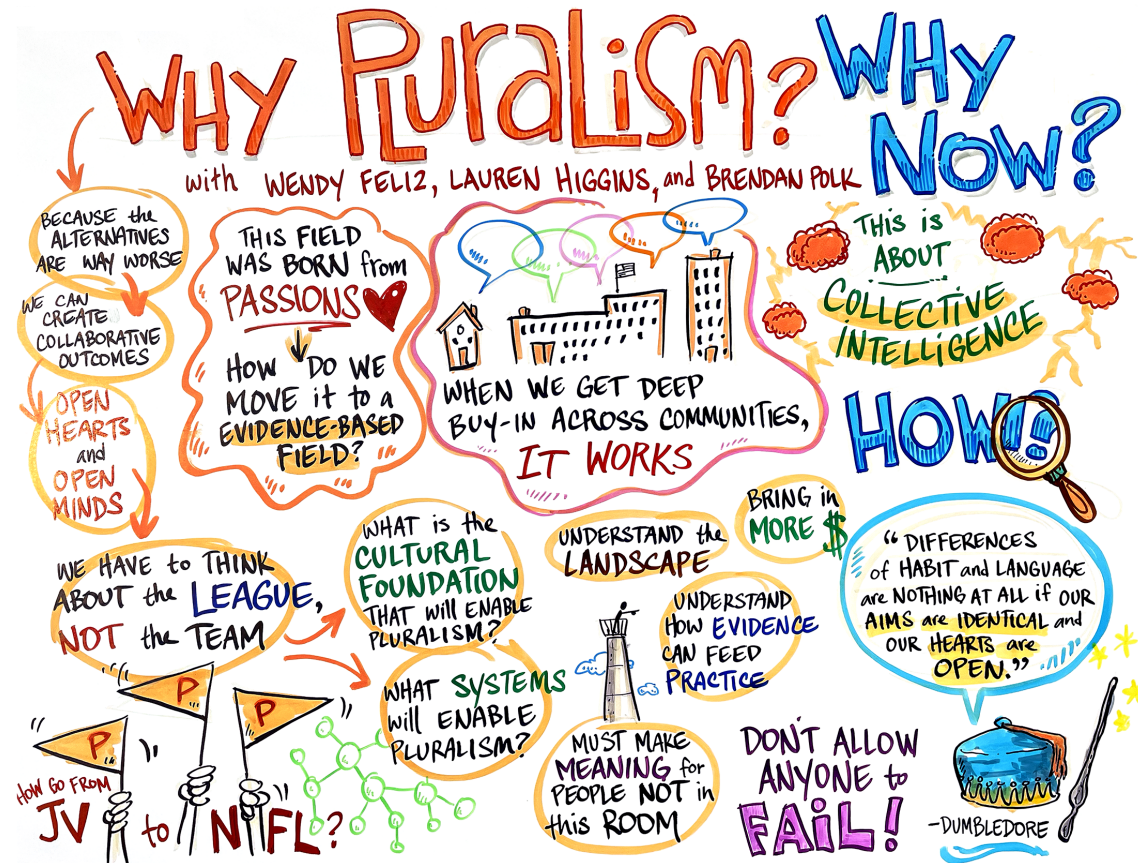 WHY PLURALISM?
WHY
NOW?
with WENDY FELIZ, LAUREN HIGGINS, and BRENDAN POLK
BECAUSE the
ALTERNATIVES
ARE WAY WORSE
WE CAN
CREATE
COLLABORATIVE
OUTCOMES
OPEN
HEARTS
and
OPEN
MINDS
THIS FIELD
WAS BORN from
PASSIONS
HOW DO WE
MOVE it to a
EVIDENCE-BASED
FIELD?
WHEN WE GET DEEP
BUY-IN ACROSS COMMUNITIES,
IT WORKS
THIS is
ABOUT
COLLECTIVE
INTELLIGENCE
HOW!!
WE HAVE to THINK
ABOUT the LEAGUE,
NOT the TEAM
WHAT is the
CULTURAL
FOUNDATION
THAT will ENABLE
PLURALISM?
WHAT SYSTEMS
will ENABLE
PLURALISM?
UNDERSTAND the
LANDSCAPE
BRING in
MORE $
UNDERSTAND
HOW EVIDENCE
CAN FEED
PRACTICE
MUST MAKE
MEANING for
PEOPLE NOT in
this ROOM
"DIFFERENCES
of HABIT and LANGUAGE
are NOTHING AT ALL if OUR
AIMS are IDENTICAL and
OUR HEARTS are
OPEN."
-DUMBLEDORE
DON'T ALLOW
ANYONE to
FAiL!
P
P
P
HOW GO FROM
JV to NFL?